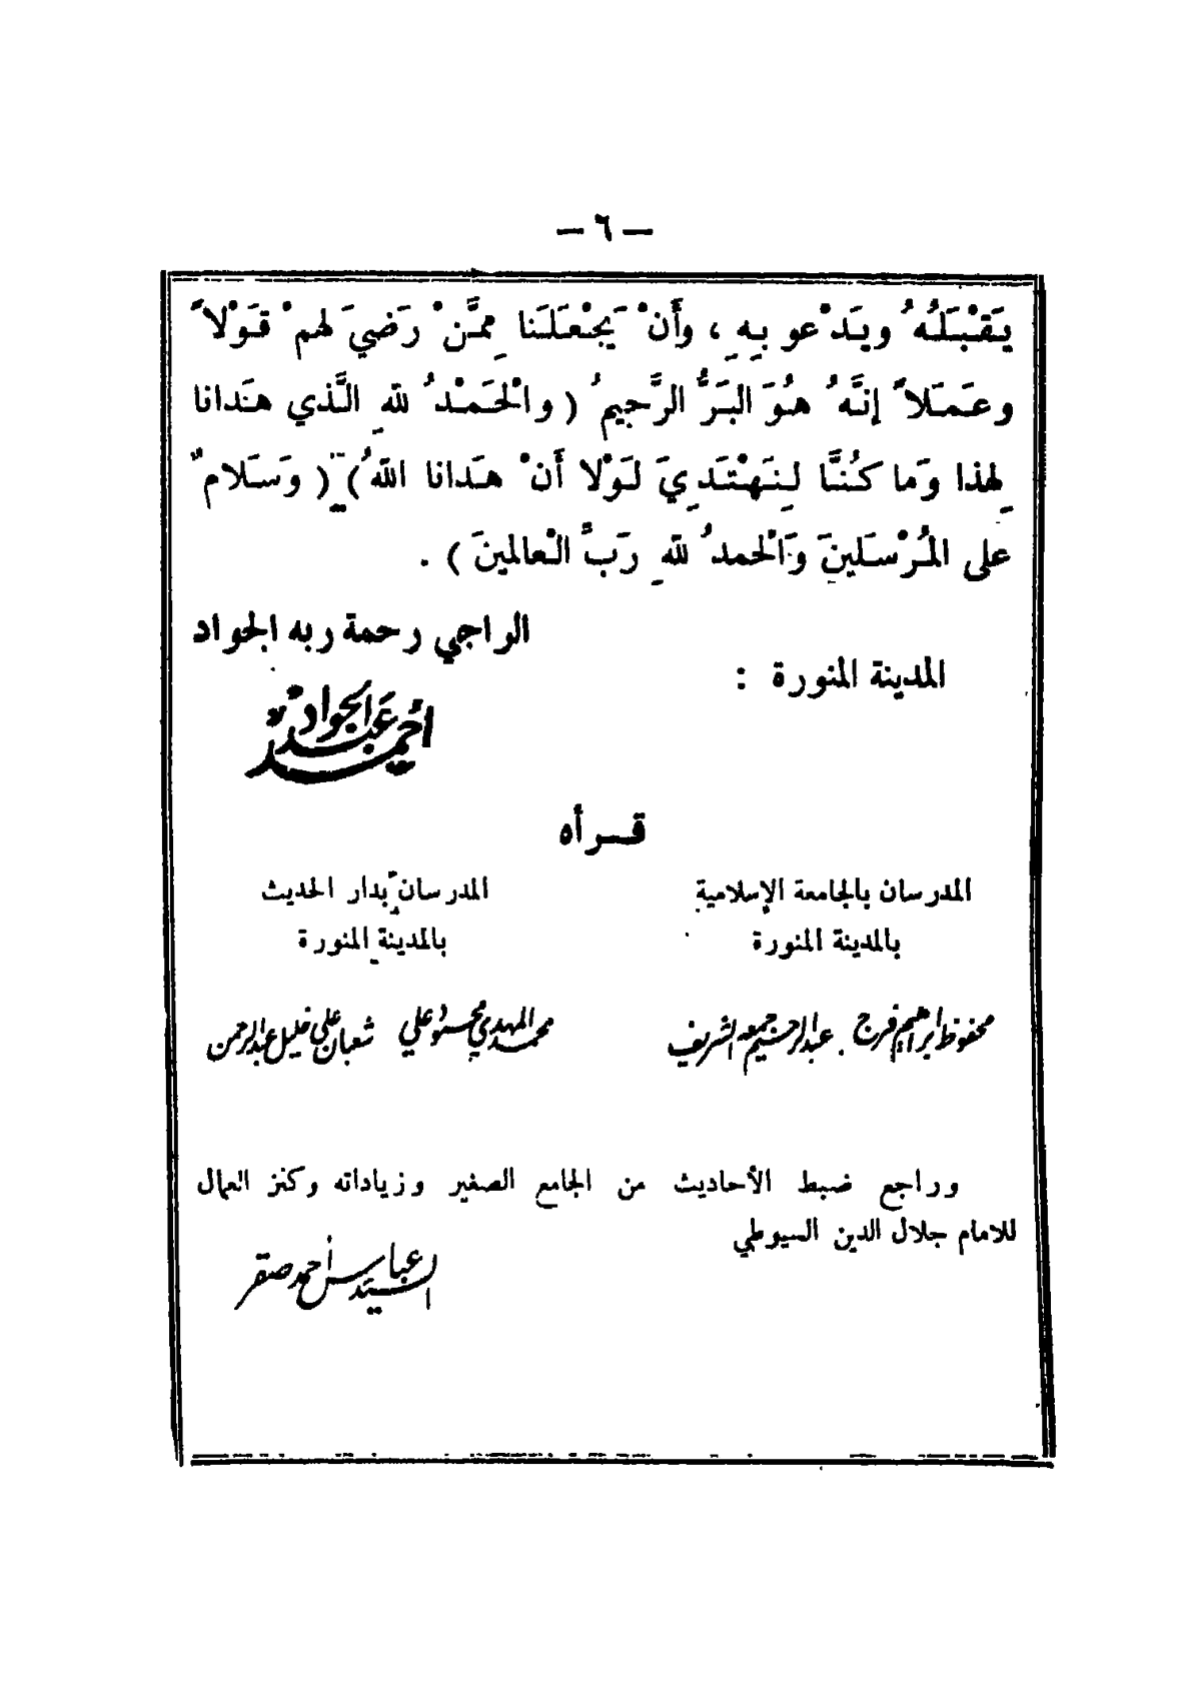 — ٦ —
يَقْبَلُهُ ويَدْعو بِهِ ، وأَنْ يَجْعَلَنا مِمَّنْ رَضيَ لهمْ قَوْلاً
وعَمَلاً إنَّهُ هُوَ البَرُّ الرَّحيمُ ( والْحَمْدُ للهِ الَّذي هَدانا
لِهذا وَما كُنَّا لِنَهْتَدِيَ لَوْلا أَنْ هَدانا اللهُ ) ( وَسَلامٌ
على المُرْسَلينَ وَالْحمدُ للهِ رَبِّ الْعالمينَ ) .
الراجي رحمة ربه الجواد
المدينة المنورة :
أحمد عبد الجواد
قرأه
المدرسان بالجامعة الإسلامية
بالمدينة المنورة
المدرسان بدار الحديث
بالمدينة المنورة
محفوظ إبراهيم فرج . عبد الرحيم جمعه الشريف
محمد المهدي محمود علي شعبان علي خليل عبد الرحمن
وراجع ضبط الأحاديث من الجامع الصغير وزياداته وكنز العمال
للامام جلال الدين السيوطي
السيد عباس أحمد صقر